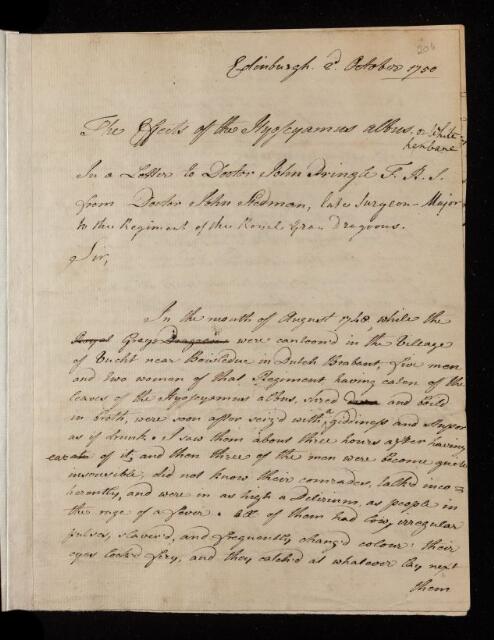 206
Edinburgh. 2d. October 1750
The Effects of the Hyosyamus albus, or white
henbane
In a Letter to Doctor John Pringle F. R. S.
from Doctor John Stedman, late Surgeon-Major
to the Regiment of the Royal Gray Dragoons.
Sir,
In the month of August 1748, while the
Royal Grays Dragoons were cantoon'd in the Veleage
of Vucht near Bowleduc in Dutch Brabant, five men
and two women of that Regiment having eaten of the
leaves of the Hyosyamus albus, shred and boil'd
in broth, were soon after seiz'd with a giddiness and stupor
as if drunk. I saw them about three hours after having
eat of it, and then three of the men were become quite
insensible, did not know their comrades, talk'd inco=
herently, and were in as high a Delirium, as people in
the rage of a fever. All of them had low, irregular
pulses, slaver'd, and frequently chang'd colour: their
eyes look'd firy, and they catch'd at whatever lay next
them